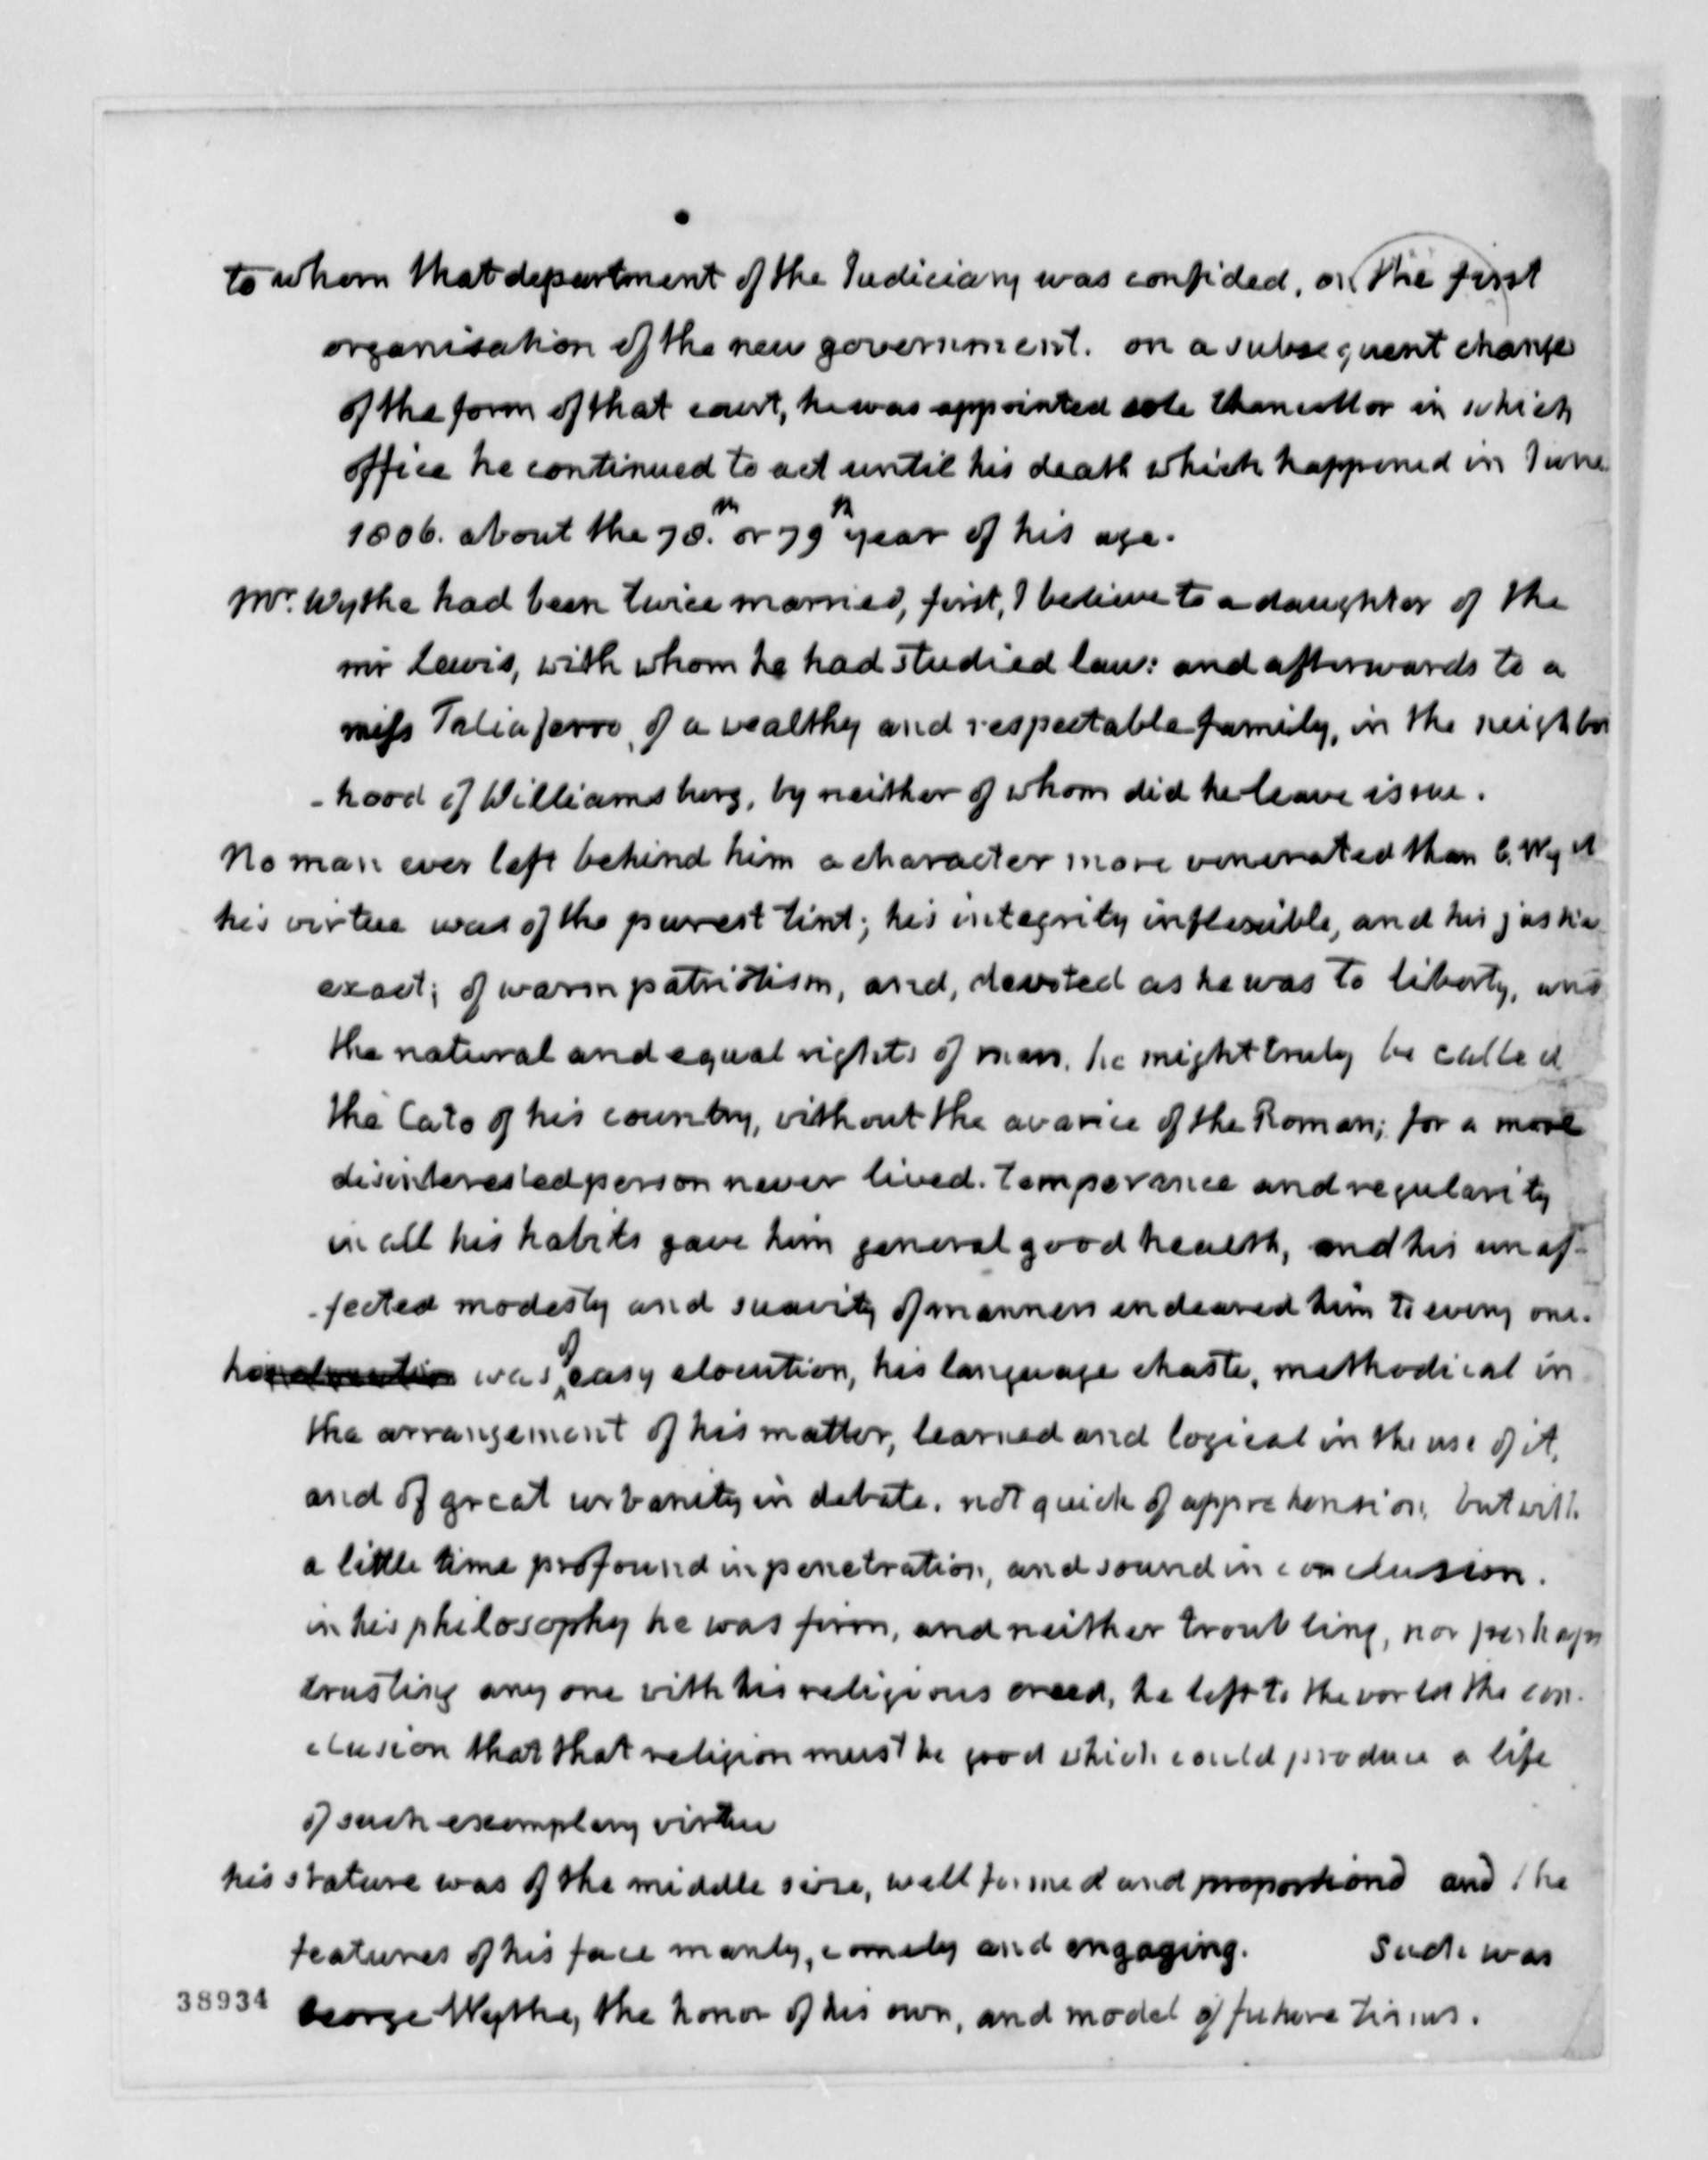 to whom that department of the Judiciary was confided, on the first
organisation of the new government. on a subsequent change
of the form of that court, he was appointed sole Chancellor in which
office he continued to act until his death which happened in June
1806. about the 78.th or 79th year of his age.
Mr. Wythe had been twice married, first, I believe to a daughter of the
mr Lewis, with whom he had studied law: and afterwards to a
miss Taliaferro, of a wealthy and respectable family, in the neighbor
-hood of Williamsburg, by neither of whom did he leave issue.
No man ever left behind him a character more venerated than G. Wyth
his virtue was of the purest tint; his integrity inflexible, and his justice
exact; of warm patriotism, and, devoted as he was to liberty, and
the natural and equal rights of man, he might truly be called
the Cato of his country, without the avarice of the Roman; for a more
disinterested person never lived. temperance and regularity
in all his habits gave him general good health, and his unaf-
-fected modesty and suavity of manners endeared him to every one.
he was of easy elocution, his language chaste, methodical in
the arrangement of his matter, learned and logical in the use of it,
and of great urbanity in debate. not quick of apprehension, but with
a little time profound in penetration, and sound in conclusion.
in his philosophy he was firm, and neither troubling, nor perhaps
trusting any one with his religious creed, he left to the world the con-
clusion that that religion must be good which could produce a life
of such exemplary virtue
his stature was of the middle size, well formed and proportiond and the
features of his face manly, comely and engaging. Such was
38934 George Wythe, the honor of his own, and model of future times.